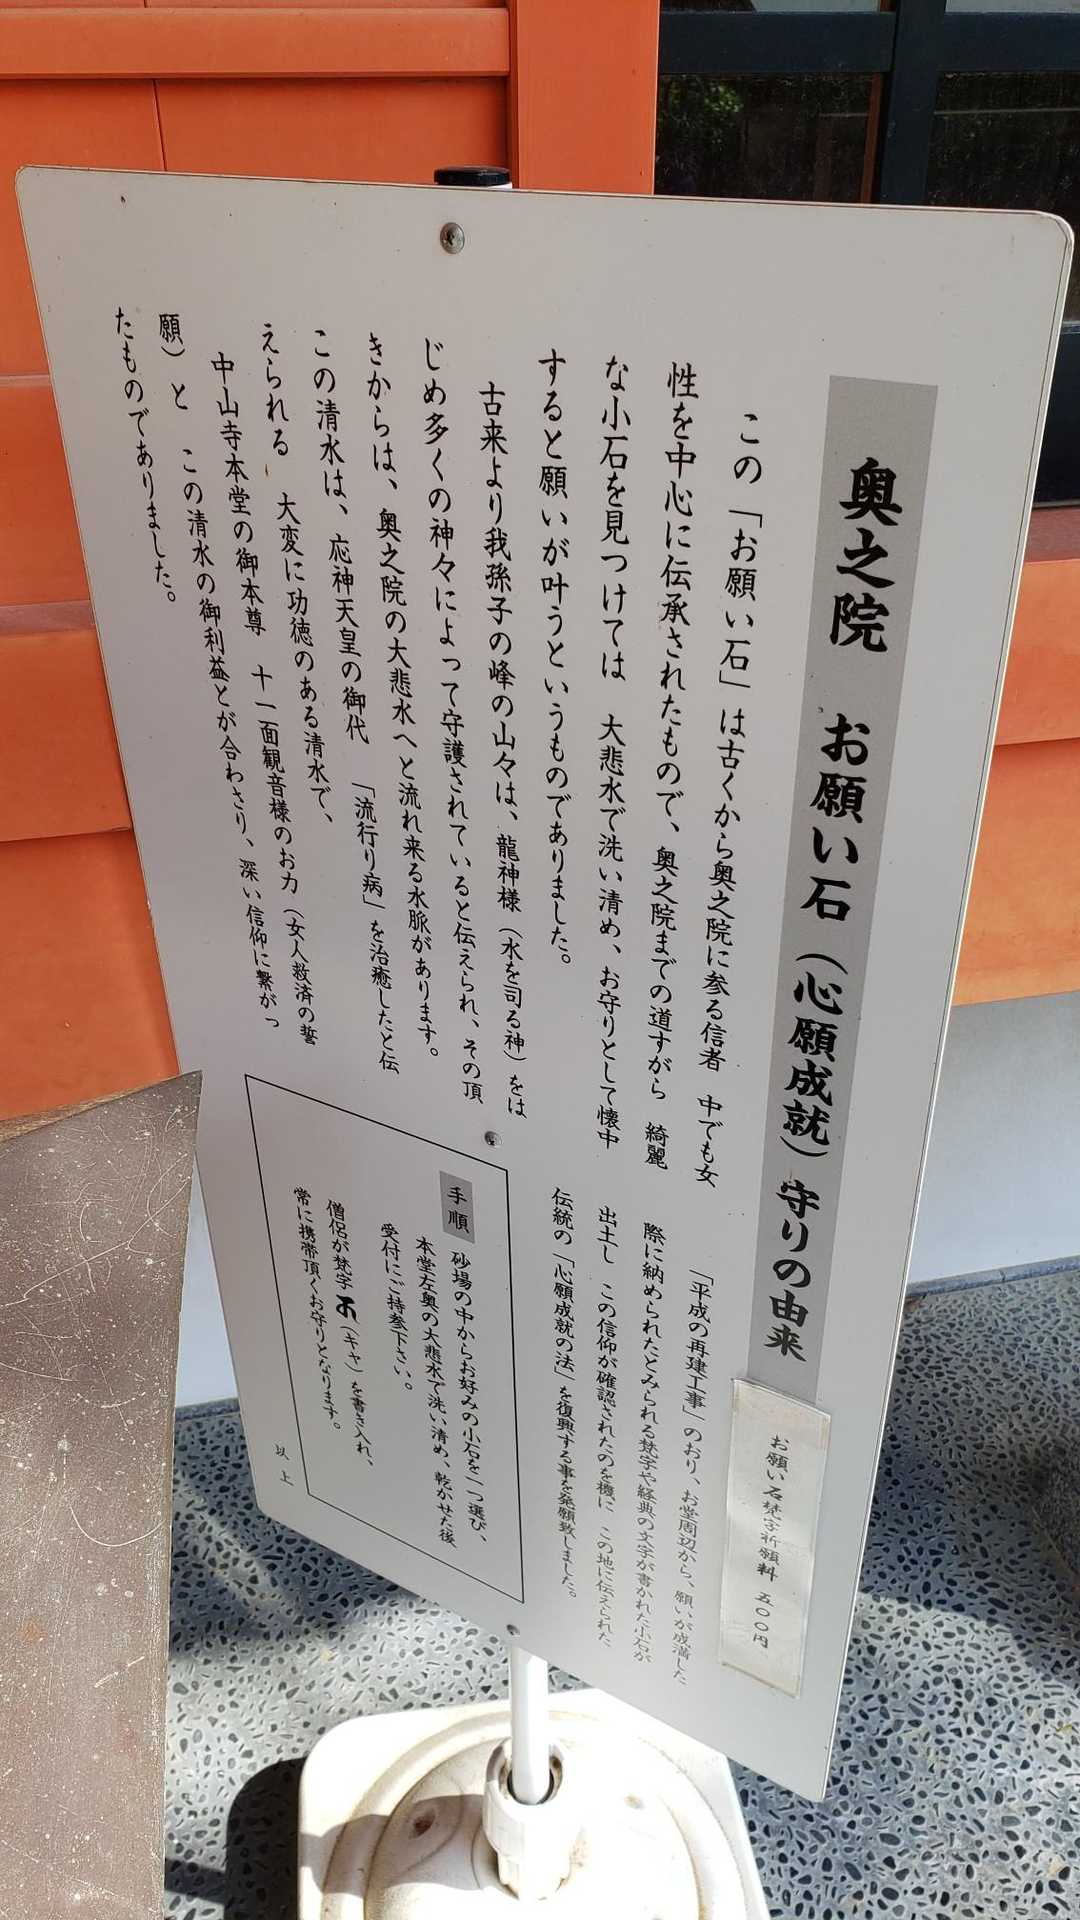 奥之院　お願い石（心願成就）守りの由来
お願い石梵字祈願料　五〇〇円
この「お願い石」は古くから奥之院に参る信者　中でも女
性を中心に伝承されたもので、奥之院までの道すがら　綺麗
な小石を見つけては　大悲水で洗い清め、お守りとして懐中
すると願いが叶うというものでありました。
古来より我孫子の峰の山々は、龍神様（水を司る神）をは
じめ多くの神々によって守護されていると伝えられ、その頂
きからは、奥之院の大悲水へと流れ来る水脈があります。
この清水は、応神天皇の御代　「流行り病」を治癒したと伝
えられる　大変に功徳のある清水で、
中山寺本堂の御本尊　十一面観音様のお力（女人救済の誓
願）と　この清水の御利益とが合わさり、深い信仰に繋がっ
たものでありました。
「平成の再建工事」のおり、お堂周辺から、願いが成満した
際に納められたとみられる梵字や経典の文字が書かれた小石が
出土し　この信仰が確認されたのを機に　この地に伝えられた
伝統の「心願成就の法」を復興する事を発願致しました。
手順
砂場の中からお好みの小石を一つ選び、
本堂左奥の大悲水で洗い清め、乾かせた後
受付にご持参下さい。
僧侶が梵字（キャ）を書き入れ、
常に携帯頂くお守りとなります。
以上